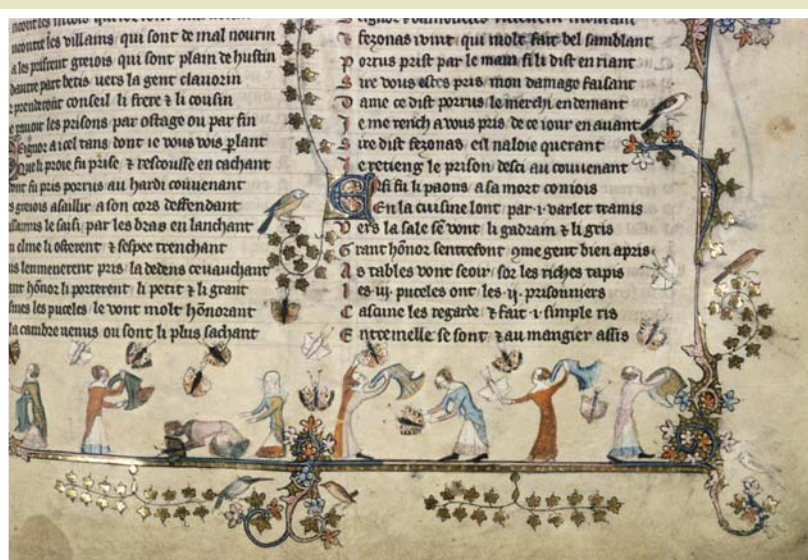 ncontre les villains qui sont de mal nourin
a les prisrent greiois qui sont plain de hustin
dautre part betis uers la gent clauorin
prenderont conseil li frere ⁊ li cousin
e rauoir les prisons par ostage ou par fin
Seignor a icel tans dont ie vous vois plant
Que li proie fu prise ⁊ rescousse en cachant
ont fu pris porrus au hardi couuenant
s greiois asaillir a son cors deffendant
le saisi par les bras en lanchant
n elme li osterent ⁊ lespee trenchant
us lenmenerent pris la dedens ceuauchant
nt hónor li porterent li petit ⁊ li grant
mes les puceles le vont molt hónorant
la cambre uenus ou sont li plus sachant
⁊ fezonas vint qui molt fait bel samblant
Porrus prist par le main si li dist en riant
Sire vous estes pris mon damage faisant
Dame ce dist porrus le merchi en demant
Je me rench a vous pris de ce iour en auant
Sire dist fezonas cil naloie querant
Je retieng le prison desci au couuenant
Ensi fu li paons a sa mort coniois
En la cuisine lont par .i. varlet tramis
Vers la sale sē vont li gadram ⁊ li gris
Grant hónor sentrefont ꝯme gent bien apris
As tables vont seoir sor les riches tapis
Les .iij. puceles ont les .ij. prisonniers
Casaune les regarde ⁊ fait .i. simple ris
Entremelle se sont ⁊ au mangier assis